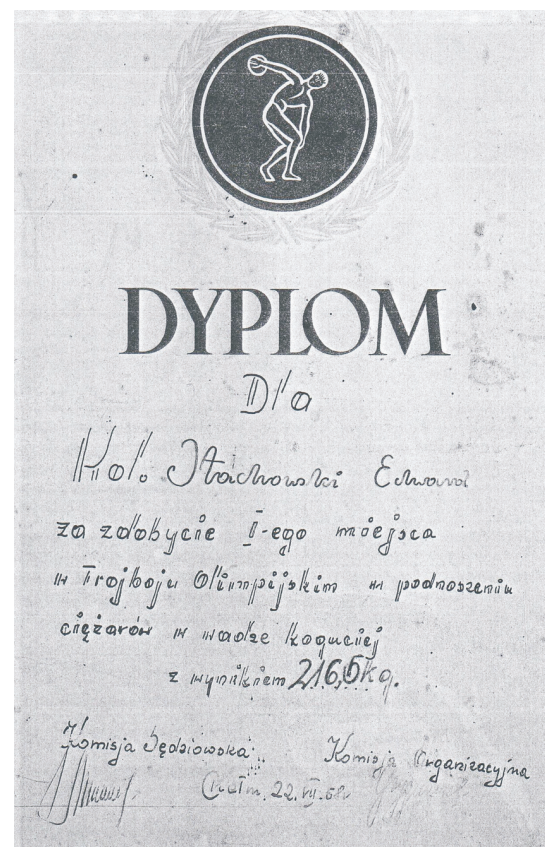 DYPLOM
Dla
Kol. Stachowski Edward
za zdobycie I-ego miejsca
w Trójboju Olimpijskim w podnoszeniu
ciężarów w wadze koguciej
z wynikiem 216,5 kg.
Komisja Sędziowska: Komisja Organizacyjna
Chełm, 22.VII.68r